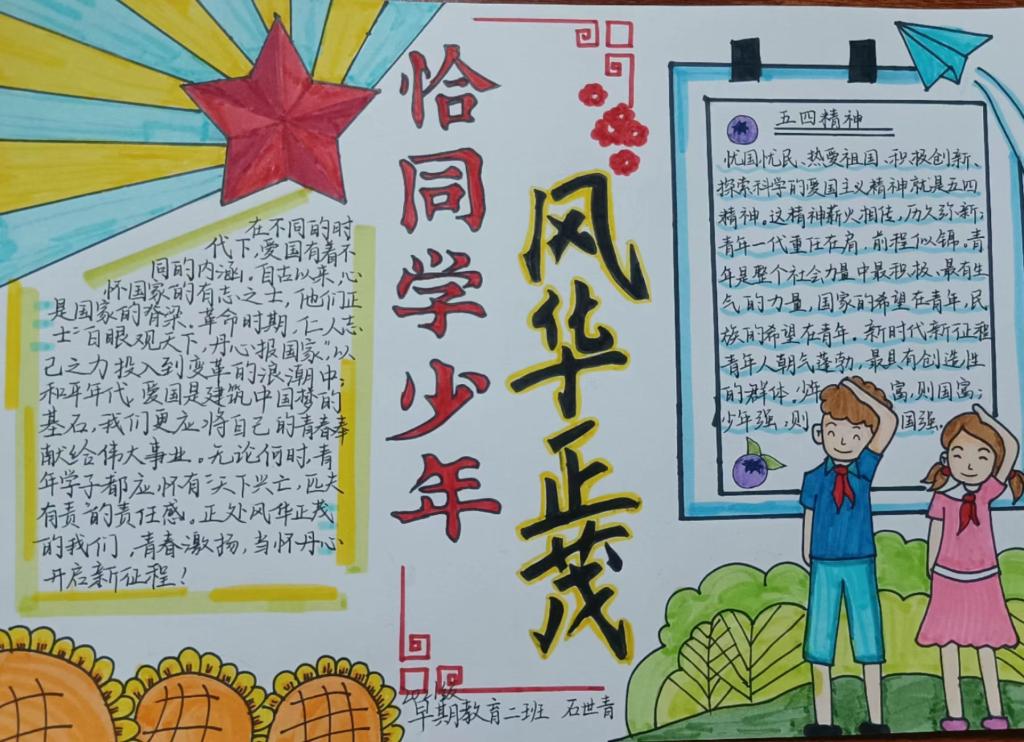 恰同学少年
风华正茂
在不同的时
代下,爱国有着不
同的内涵。自古以来,心
怀国家的有志之士,他们正
是国家的脊梁。革命时期,仁人志
士“白眼观天下,丹心报国家”,以
己之力投入到变革的浪潮中;
和平年代,爱国是建筑中国梦的
基石,我们更应将自己的青春奉
献给伟大事业。无论何时,青
年学子都应怀有“天下兴亡,匹夫
有责”的责任感。正处风华正茂
的我们,青春激扬,当怀丹心
开启新征程!
五四精神
忧国忧民、热爱祖国、积极创新、
探索科学的爱国主义精神就是五四
精神。这精神薪火相传,历久弥新;
青年一代重任在肩,前程似锦。青
年是整个社会力量中最积极、最有生
气的力量,国家的希望在青年,民
族的希望在青年。新时代新征程
青年人朝气蓬勃,最具有创造性
的群体。富,则国富;
少年强,则国强。
早期教育二班 石世青